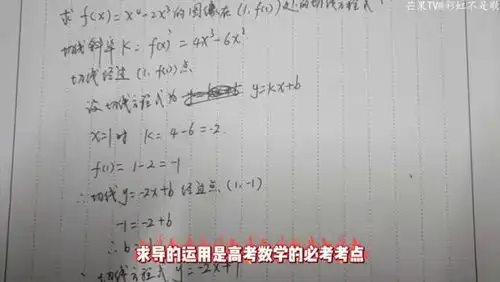 求 f(x)=x⁴-2x³的图像在(1,f(1))处的切线方程式
切线斜率 K= f(x)' = 4x³-6x²
切线经过(1,f(1))点
设切线方程式为 y=kx+b
x=1时 k=4-6=-2
f(1)=1-2=-1
∴切线y=-2x+b 经过点(1,-1)
-1=-2+b
∴b
求导的运用是高考数学的必考考点
∴切线方程式 y=-2x+1
芒果TV